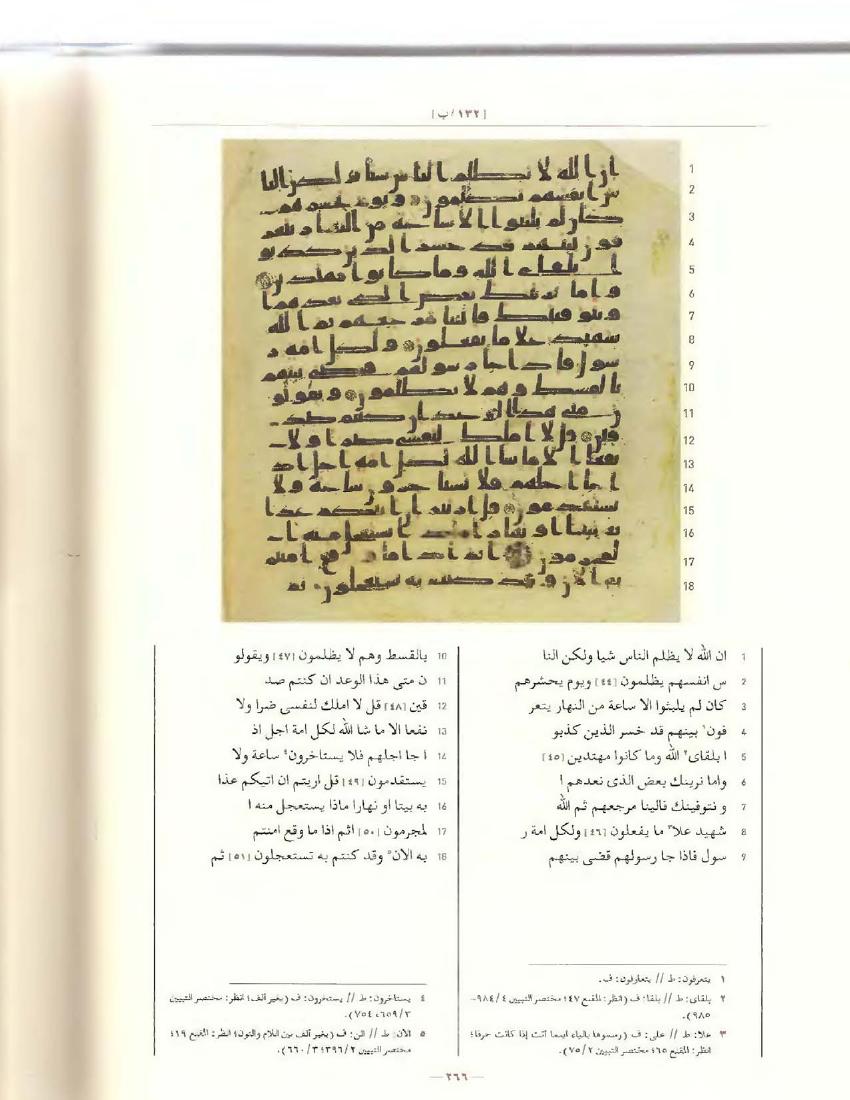 [١٣٢/ب]
1 ان الله لا يظلم الناس شيا ولكن النا
2 س انفسهم يظلمون [٤٤] ويوم يحشرهم
3 كان لم يلبثوا الا ساعة من النهار يتعر
4 فون١ بينهم قد خسر الذين كذبو
5 ا بلقاى٢ الله وما كانوا مهتدين [٤٥]
6 واما نرينك بعض الذى نعدهم ا
7 و نتوفينك فالينا مرجعهم ثم الله
8 شهيد علا٣ ما يفعلون [٤٦] ولكل امة ر
9 سول فاذا جا رسولهم قضى بينهم
10 بالقسط وهم لا يظلمون [٤٧] ويقولو
11 ن متى هذا الوعد ان كنتم صد
12 قين [٤٨] قل لا املك لنفسى ضرا ولا
13 نفعا الا ما شا الله لكل امة اجل اذ
14 ا جا اجلهم فلا يستاخرون٤ ساعة ولا
15 يستقدمون [٤٩] قل اريتم ان اتيكم عذا
16 به بيتا او نهارا ماذا يستعجل منه ا
17 لمجرمون [٥٠] اثم اذا ما وقع امنتم
18 به الان٥ وقد كنتم به تستعجلون [٥١] ثم
١ يتعرفون: ط // يتعارفون: ف.
٢ بلقاى: ط // بلقا: ف (انظر: المقنع ٤٧؛ مختصر التبيين ٤/ ٩٨٤-
٩٨٥).
٣ علا: ط // على: ف (رسموها بالياء اينما أتت إذا كانت حرفا؛
انظر: المقنع ٦٥؛ مختصر التبيين ٢/ ٧٥).
٤ يستاخرون: ط // يستخرون: ف (بغير ألف؛ انظر: مختصر التبيين
٣/ ٦٥٩، ٧٥٤).
٥ الان: ط // الن: ف (بغير ألف بين اللام والنون؛ انظر: المقنع ١٩؛
مختصر التبيين ٢/ ٣٩٦؛ ٣/ ٦٦٠).
— ٢٦٦ —